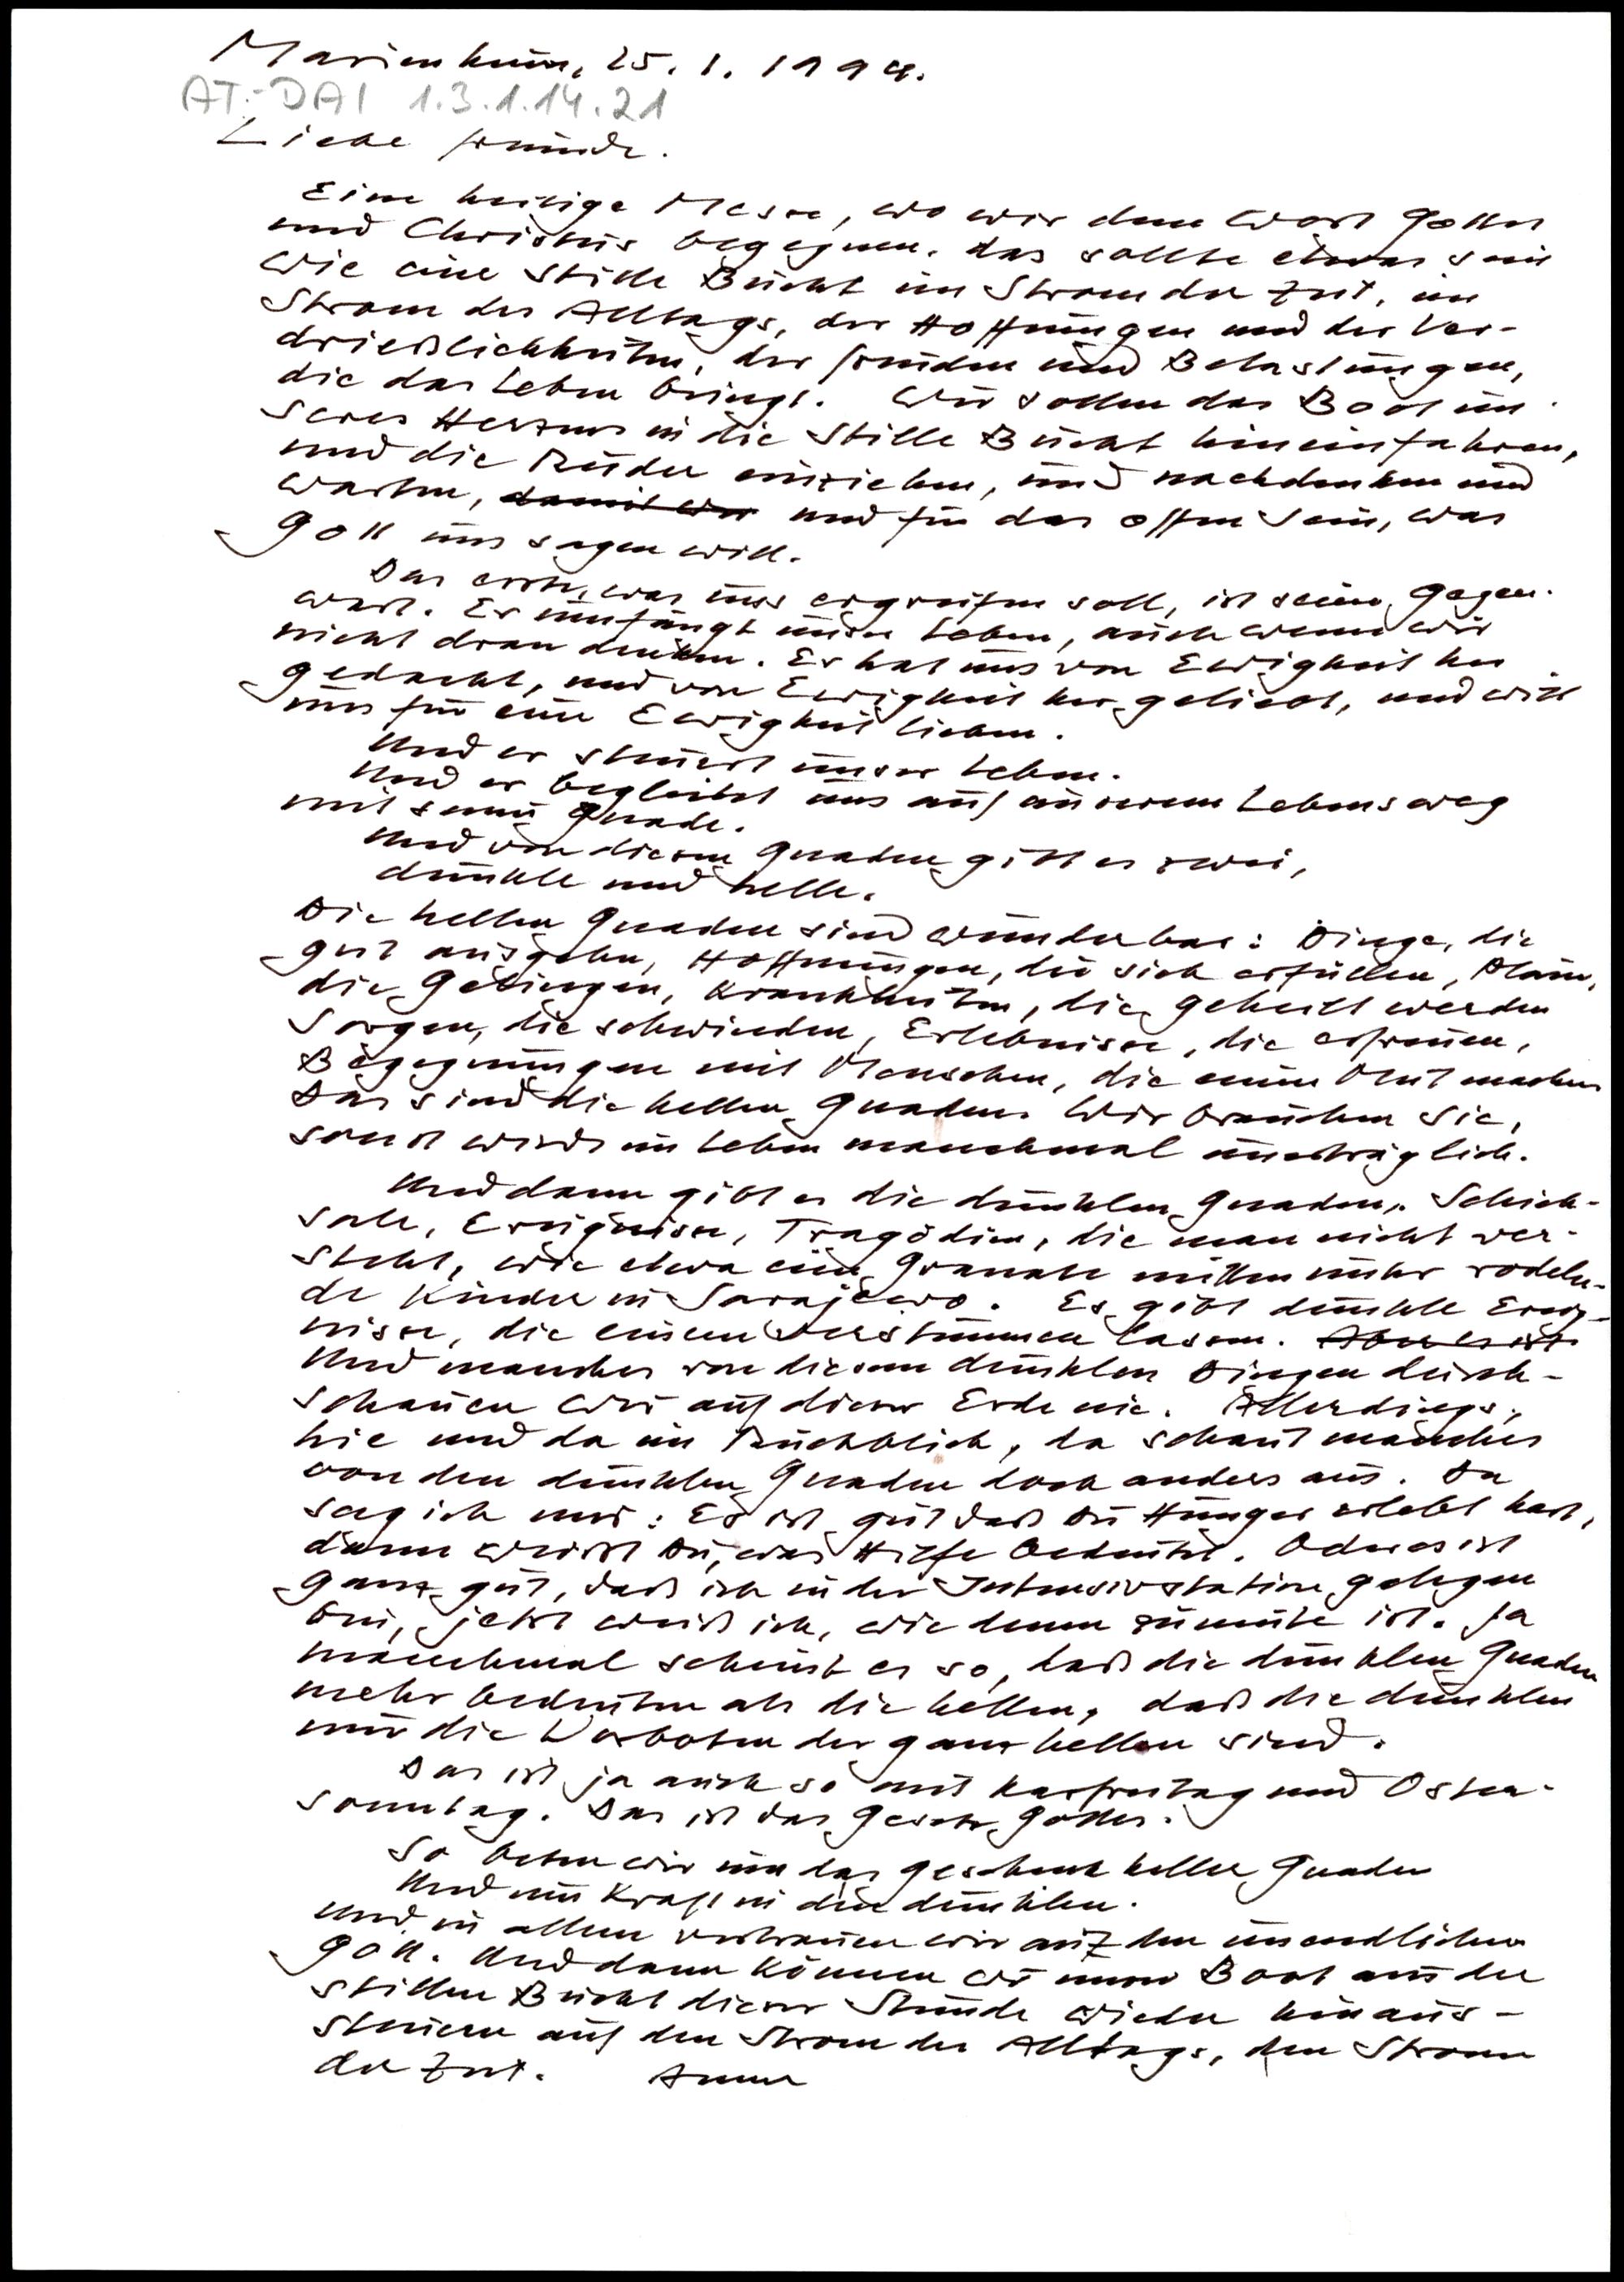 Marienheim, 25. 1. 1994.
AT.-DAI 1.3.1.14.21
Liebe Freunde.
Eine heilige Messe, wo wir dem Wort Gottes
und Christus begegnen. das sollte etwas sein
wie eine stille Bucht im Strom der Zeit, im
Strom des Alltags, der Hoffnungen und der Ver-
drießlichkeiten, der Freuden und Belastungen,
die das Leben bringt. Wir sollen das Boot un-
seres Herzens in die stille Bucht hineinfahren,
und die Ruder einziehen, und nachdenken und
warten, damit wir und für das offen sein, was
Gott uns sagen will.
Das erste, was uns ergreifen soll, ist seine Gegen-
wart. Er umfängt unser Leben, auch wenn wir
nicht dran denken. Er hat uns von Ewigkeit her
gedacht, und von Ewigkeit her geliebt, und will
uns für eine Ewigkeit lieben.
Und er steuert unser Leben.
Und er begleitet uns auf unserem Lebensweg
mit seiner Gnade.
Und von diesen Gnaden gibt es zwei,
dunkle und helle.
Die hellen Gnaden sind wunderbar: Dinge, die
gut ausgehn, Hoffnungen, die sich erfüllen, Pläne,
die gelingen, Krankheiten, die geheilt werden
Sorgen, die schwinden, Erlebnisse, die erfreuen,
Begegnungen mit Menschen, die einem Mut machen
Das sind die hellen Gnaden. Wir brauchen sie,
sonst wirds im Leben manchmal unerträglich.
Und dann gibt es die dunklen Gnaden. Schick-
sale, Ereignisse, Tragödien, die man nicht ver-
steht, wie etwa eine Granate mitten unter rodeln-
de Kinder in Sarajewo. Es gibt dunkle Ereig-
nisse, die einen verstummen lassen. Aber es ist
Und manches von diesen dunklen Dingen durch-
schauen wir auf dieser Erde nie. Allerdings,
hie und da im Rückblick, da schaut manches
von den dunklen Gnaden doch anders aus. Da
sag ich mir: Es ist gut daß Du Hunger erlebt hast,
dann weißt Du, was Hilfe bedeutet. Oder es ist
ganz gut, daß ich in der Intensivstation gelegen
bin, jetzt weiß ich, wie denen zumute ist. Ja
manchmal scheint es so, daß die dunklen Gnaden
mehr bedeuten als die hellen, daß die dunklen
nur die Vorboten der ganz hellen sind.
Das ist ja auch so mit Karfreitag und Oster-
sonntag. Das ist das Gesetz Gottes.
So beten wir um das Geschenk heller Gnaden
Und um Kraft in den dunklen.
Und in allem vertrauen wir auf den unendlichen
Gott. Und dann können wir unser Boot aus der
stillen Bucht dieser Stunde wieder hinaus-
steuern auf den Strom des Alltags, den Strom
der Zeit. Amen